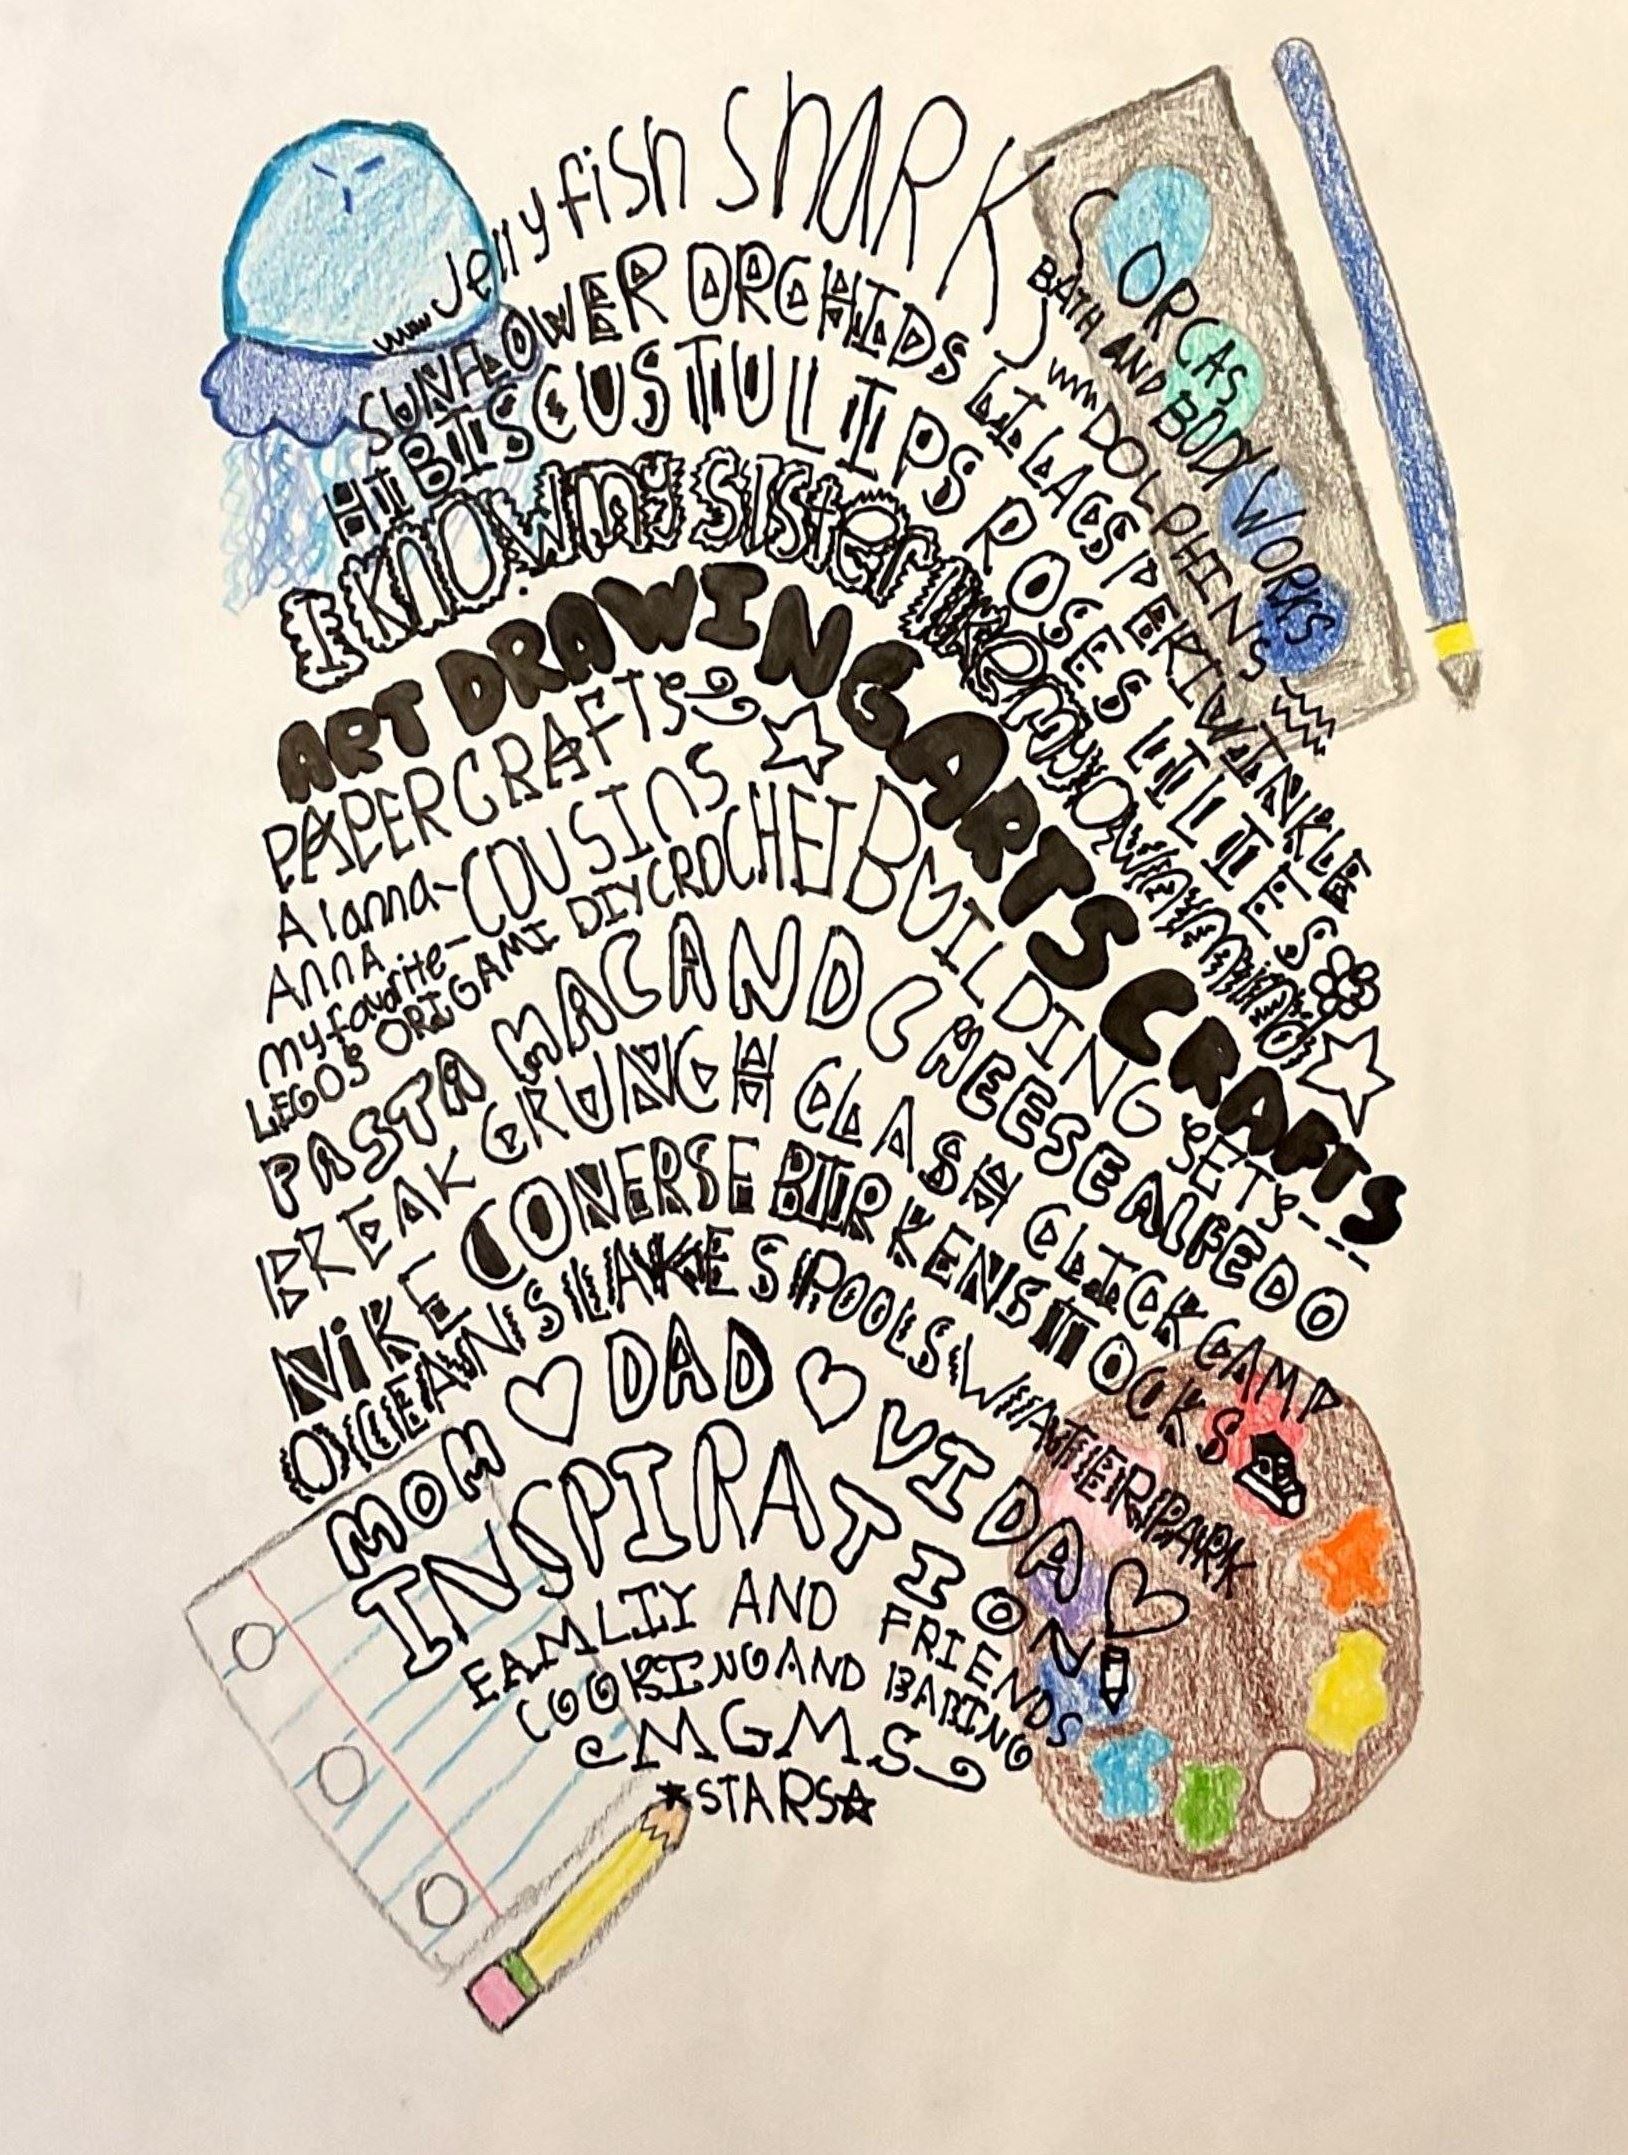 Jellyfish SHARKS ORCAS
BATH AND BODY WORKS
SUNFLOWER ORCHIDS LILACS PERIWINKLE
DOLPHINS
HIBISCUS TULIPS ROSES LILIES
I KNOW my SISTER like my own mind
ART DRAWING ARTS CRAFTS
PAPER CRAFTS
Alanna-COUSINS
Anna
my favorite-
LEGOS ORIGAMI DIY CROCHET BUILDING SETS
PASTA MAC AND CHEESE ALFEDO
BREAK CRUNCH CLASH CLICK CAMP
NIKE CONERSE BIRKENSTOCKS
OCEANS LAKES POOLS WATERPARK
MOM ♡ DAD ♡ VIDA ♡
INSPIRATION
FAMLIY AND FRIENDS
COOKING AND BABING
MGMS
★STARS☆